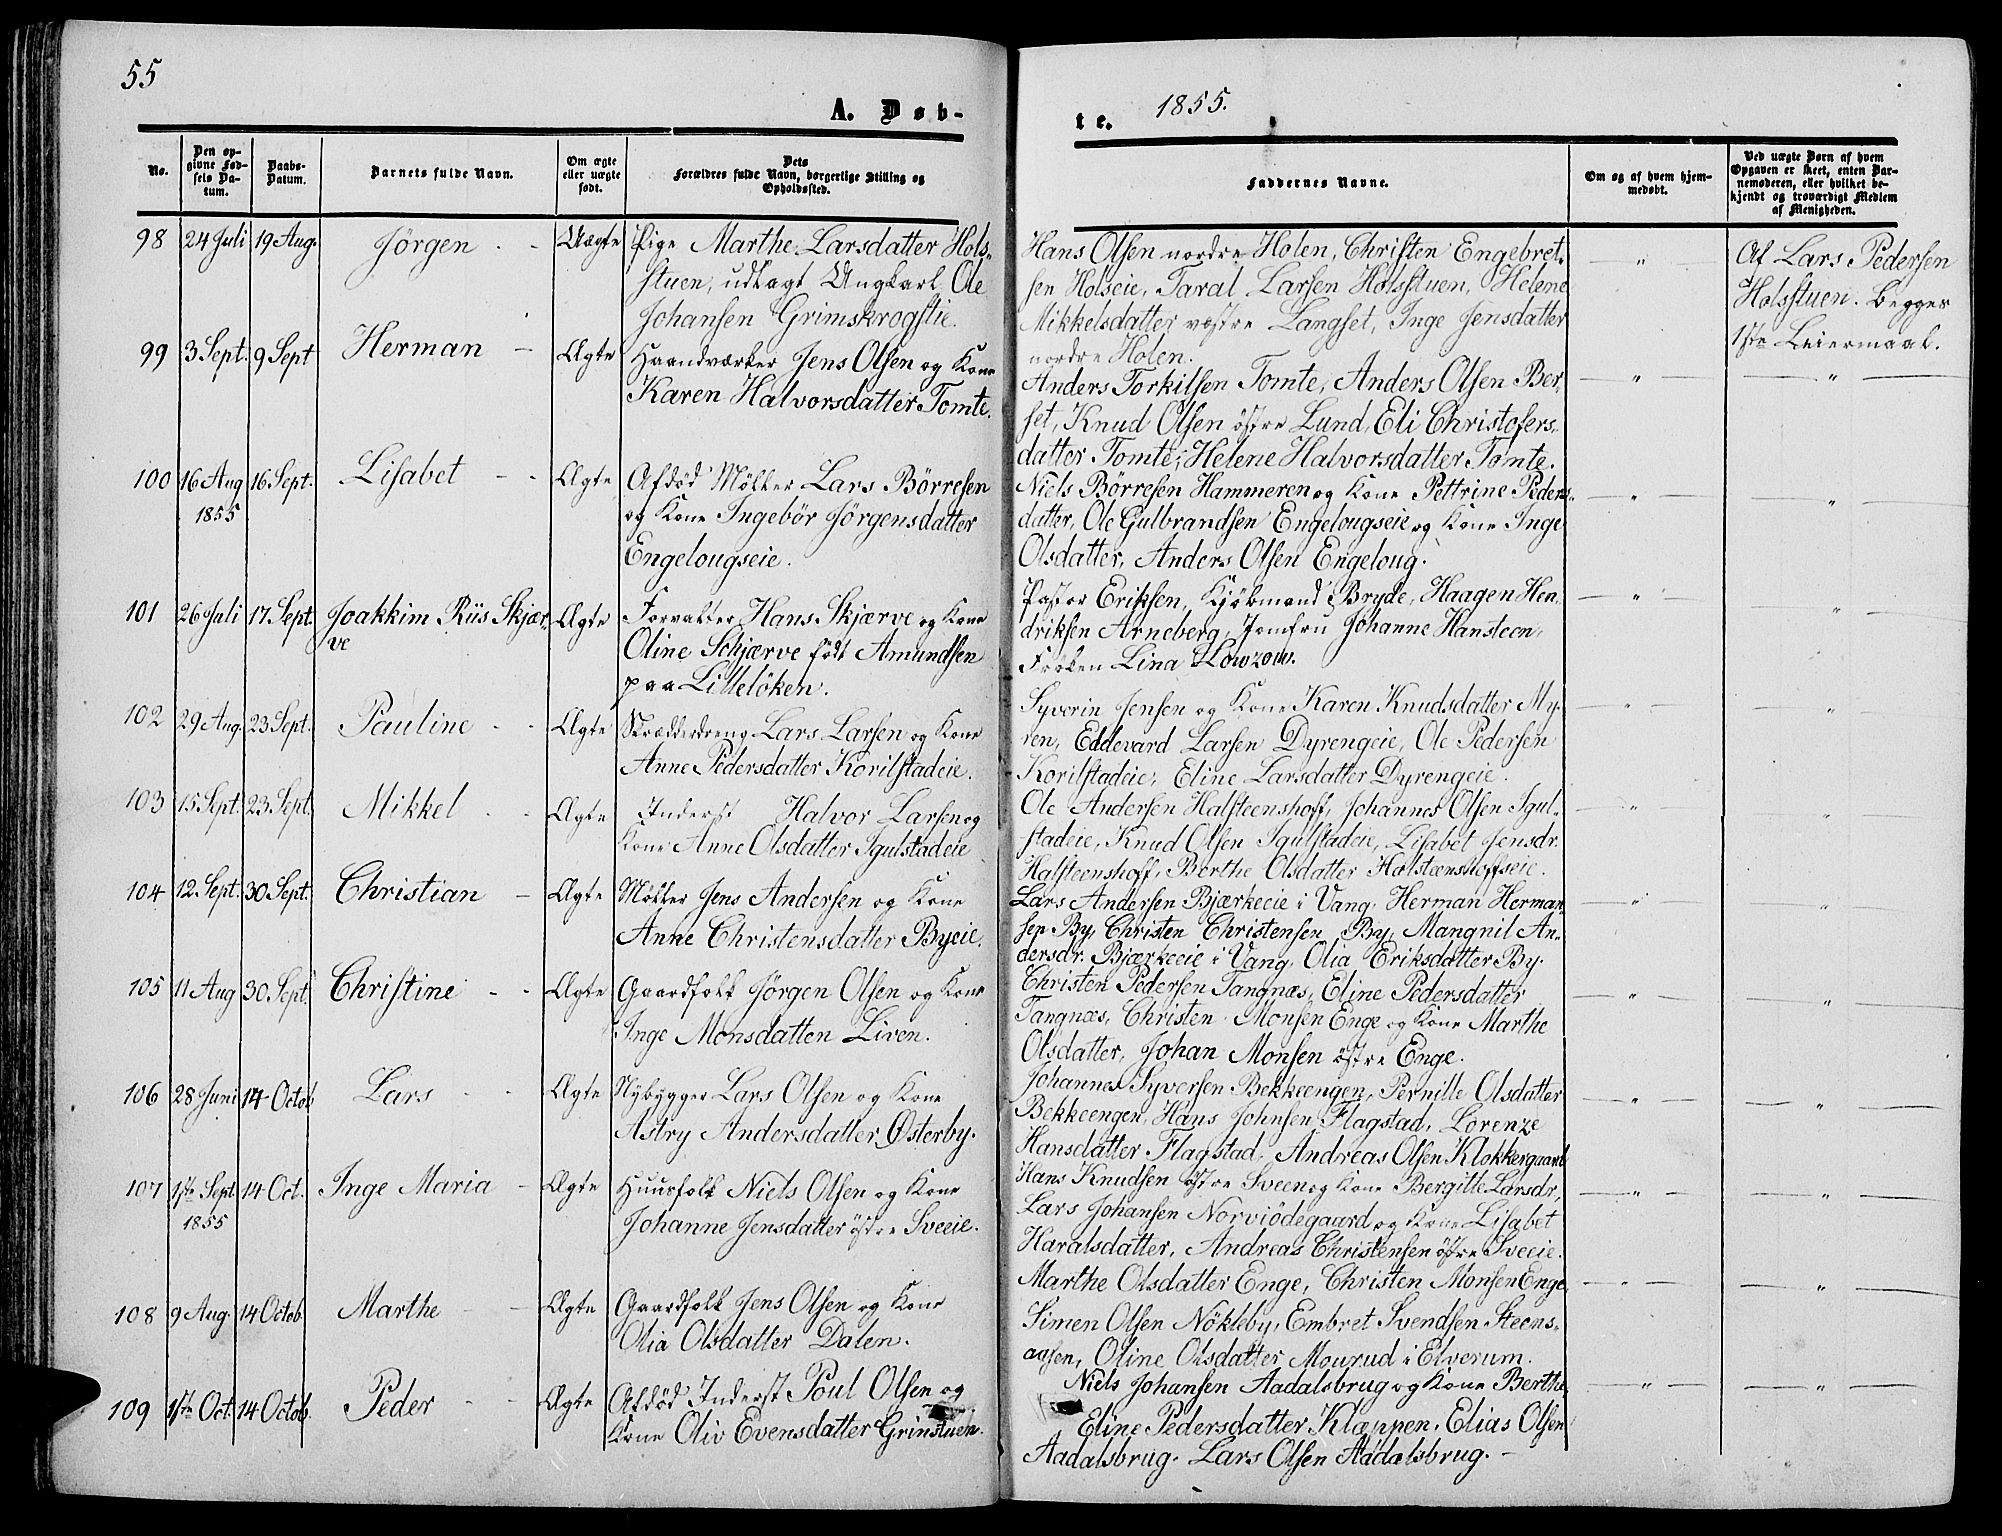 55
A. Døb-
No.
Den op-
givne Fød-
sels Da-
tum.
Daabs-
Datum.
Barnets fulde Navn.
Om ægte
eller uægte
født.
Dets
Forældres fulde Navn, borgerlige Stilling og
Opholdssted.
98 24 Juli 19 Aug. Jörgen - - Uægte Pige Marthe Larsdatter Hols-
stuen, udlagt Ungkarl Ole
Johansen Grimskrogstie.
99 3 Sept. 9 Sept Herman - Ægte Haandværker Jens Olsen og Kone
Karen Halvorsdatter Tomte.
100 16 Aug 16 Sept. Lisabet - - Ægte Afdöd Möller Lars Börresen
1855 og Kone Ingebör Jörgensdatter
Engelougseie.
101 26 Juli 17 Sept. Joakkim Riis Skjær- Ægte Forvalter Hans Skjærve og Kone
ve Oline Schjærve född Amundsen
paa Lilleløken.
102 29 Aug. 23 Sept. Pauline - - Ægte Skrædderdreng Lars Larsen og Kone
Anne Pedersdatter Korilstadeie.
103 15 Sept. 23. Sept. Mikkel - - Ægte Inderst Halvor Larsen og
Kone Anne Olsdatter Igulstadeie
104 12. Sept. 30 Sept. Christian - Ægte Möller Jens Andersen og Kone
Anne Christensdatter Byeie.
105 11 Aug 30. Sept. Christine - - Ægte Gaardfolk Jörgen Olsen og Kone
Inge Monsdatten Liven.
106 28 Juni 14 Octob Lars - - Ægte Nybygger Lars Olsen og Kone
Astry Andersdatter Østerby.
107 1ste Sept 14 Oct. Inge Maria - Ægte Huusfolk Niels Olsen og Kone
1855 Johanne Jensdatter östre Sveeie.
108 9 Aug. 14 Octob. Marthe - - Ægte Gaardfolk Jens Olsen og Kone
Olia Olsdatter Dalen.
109 1ste Oct. 14 Octob. Peder - - Ægte Afdöd Inderst Poul Olsen og
Kone Oliv Evensdatter Grinstuen.
te. 1855.
Faddernes Navne.
Om og af hvem hjem-
medøbt.
Ved uægte Børn af hvem
Opgaven er skeet, enten Bar-
nemoderen, eller hvilket be-
kjendt og troværdigt Medlem
af Menigheden.
Hans Olsen nordre Holen, Christen Engebret- — " — Af Lars Pedersen
sen Holseie, Taral Larsen Holsstuen, Helene Holsstuen. Begges
Mikkelsdatter væstre Langset, Inge Jensdatter 1ste Leiermaal.
nordre Holen.
Anders Torkilsen Tomte, Anders Olsen Ber- — " — — " —
set, Knud Olsen östre Lund, Eli Christofers-
datter Tomte, Helene Halvorsdatter Tomte.
Niels Börresen Hammeren og Kone Pettrine Peders- — " — — " —
datter, Ole Gulbrandsen Engelougseie og Kone Inge
Olsdatter, Anders Olsen Engeloug.
Pastor Eriksen, Kjöbmand Bryde, Haagen Hen- — " — — " —
driksen Arneberg, Jomfru Johanne Hansteen,
Fröken Lina Lowzow.
Syverin Jensen og Kone Karen Knudsdatter My- — " — — " —
ren, Eddevard Larsen Dyrengeie, Ole Pedersen
Korilstadeie, Eline Larsdatter Dyrengeie.
Ole Andersen Halsteenshoff, Johannes Olsen Igul- — " — — " —
stadeie, Knud Olsen Igulstadeie, Lisabet Jensdr.
Halsteenshoff, Berthe Olsdatter Halsteenshoffseie.
Lars Andersen Bjærkeeie i Vang, Herman Herman- — " — — " —
sen By, Christen Christensen By, Mangnil An-
dersdr. Bjærkeeie i Vang, Olia Eriksdatter By.
Christen Pedersen Tangnæs, Eline Pedersdatter — " — — " —
Tangnæs, Christen Monsen Enge og Kone Marthe
Olsdatter, Johan Monsen östre Enge.
Johannes Syversen Bekkeengen, Pernille Olsdatter — " — — " —
Bekkeengen, Hans Johnsen Flagstad, Lorenze
Hansdatter Flagstad, Andreas Olsen Klokkergaard
Hans Knudsen östre Sveen og Kone Bergitte Larsdr, — " — — " —
Lars Johansen Norviödegaard og Kone Lisabet
Haralsdatter, Andreas Christensen östre Sveeie.
Marthe Olsdatter Enge, Christen Monsen Enge, — " — — " —
Simen Olsen Nökleby, Embret Svendsen Steens-
aasen, Oline Olsdatter Mourud i Elverum.
Niels Johansen Aadalsbrug og Kone Berthe — " — — " —
Eline Pedersdatter Klæppen, Elias Olsen
Aadalsbrug. Lars Olsen Aadalsbrug. -